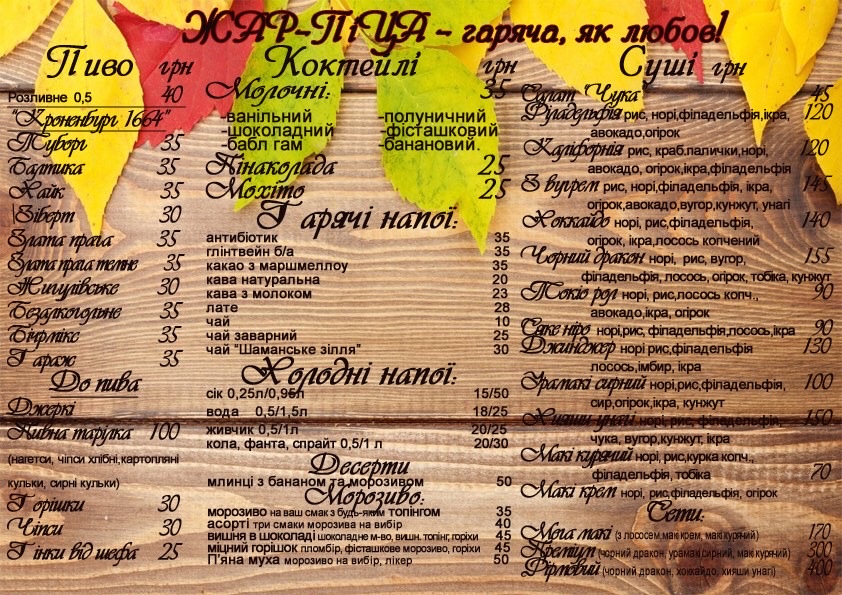 ЖАР-ПіЦА - гаряча, як любов!
Пиво грн
Розливне 0,5 40
"Кроненбург 1664"
Туборг 35
Балтика 35
Хайк 35
Зіберт 30
Злата прага 35
Злата прага темне 35
Жигулівське 30
Безалкогольне 35
Бірмікс 35
Гараж 35
До пива
Джеркі
Пивна тарілка 100
(нагетси, чіпси хлібні,картопляні
кульки, сирні кульки)
Горішки 30
Чіпси 30
Гінки від шефа 25
Коктейлі грн
Молочні: 35
-ванільний -полуничний
-шоколадний -фісташковий
-бабл гам -банановий.
Пінаколада 25
Мохіто 25
Гарячі напої:
антибіотик 35
глінтвейн б/а 35
какао з маршмеллоу 35
кава натуральна 20
кава з молоком 23
лате 28
чай 10
чай заварний 25
чай "Шаманське зілля" 30
Холодні напої:
сік 0,25л/0,95л 15/50
вода 0,5/1,5л 18/25
живчик 0,5/1л 20/25
кола, фанта, спрайт 0,5/1 л 20/30
Десерти
млинці з бананом та морозивом 50
Морозиво:
морозиво на ваш смак з будь-яким топінгом 35
асорті три смаки морозива на вибір 40
вишня в шоколаді шоколадне м-во, вишн. топінг, горіхи 45
міцний горішок пломбір, фісташкове морозиво, горіхи 45
П'яна муха морозиво на вибір, лікер 50
Суші грн
Салат "Чука" 45
Філадельфія рис, норі,філадельфія,ікра, 120
авокадо,огірок
Каліфорнія рис, краб.палички,норі, 120
авокадо, огірок,ікра,філадельфія
З вугрем рис, норі,філадельфія, ікра, 145
огірок,авокадо,вугор,кунжут, унагі
Хоккайдо норі, рис,філадельфія, 140
огірок, ікра,лосось копчений
Чорний дракон норі, рис, вугор, 155
філадельфія, лосось, огірок, тобіка, кунжут
Токіо рол норі, рис,лосось копч., 90
авокадо,ікра, огірок
Сяке ніро норі,рис, філадельфія,лосось,ікра 90
Джинджер норі рис,філадельфія 130
лосось,імбир, ікра
Урамакі сирний норі,рис,філадельфія, 100
сир,огірок,ікра, кунжут
Хияши унагі норі, рис, філадельфія, 150
чука, вугор,кунжут, ікра
Макі курячий норі, рис,курка копч., 70
філадельфія, тобіка
Макі крем норі, рис,філадельфія, огірок
Сети:
Мега макі (з лососем,макі крем, макі курячий) 170
Преміум (чорний дракон, урамакі сирний, макі курячий) 300
Фірмовий (чорний дракон, хоккайдо, хияши унагі) 400